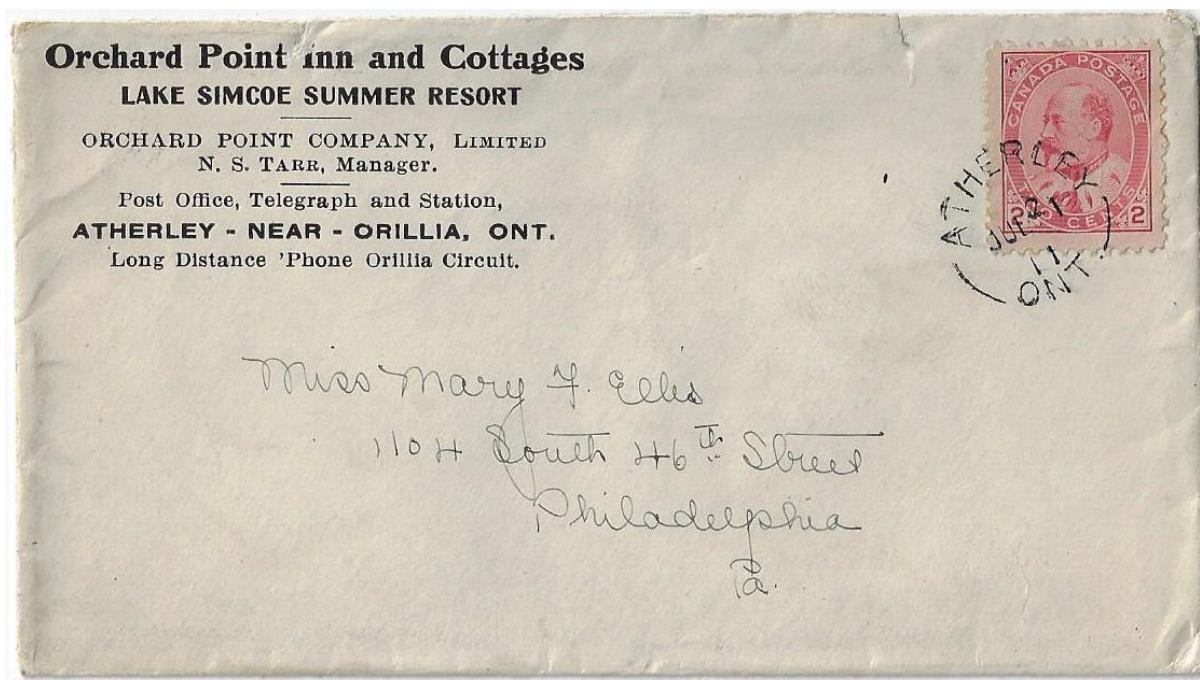 Orchard Point Inn and Cottages
LAKE SIMCOE SUMMER RESORT
ORCHARD POINT COMPANY, LIMITED
N. S. TARR, Manager.
Post Office, Telegraph and Station,
ATHERLEY - NEAR - ORILLIA, ONT.
Long Distance 'Phone Orillia Circuit.
CANADA POSTAGE
2 CENTS 2
ATHERLEY
21
11
ONT.
Miss Mary F. Ellis
1104 South 46th Street
Philadelphia
Pa.